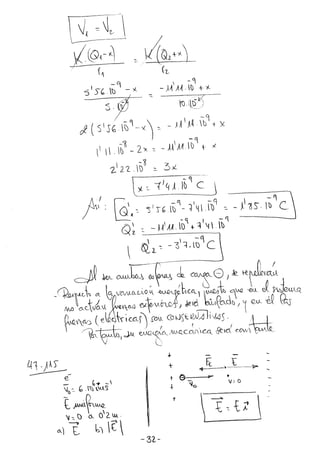 V₁ = V₂
K(Q₁-x) / r₁ = K(Q₂+x) / r₂
5'56·10⁻⁹ - x / 5·10⁻² = -11'11·10⁻⁹ + x / 10·10⁻²
2(5'56·10⁻⁹ - x) = -11'11·10⁻⁹ + x
1'11·10⁻⁸ - 2x = -11'11·10⁻⁹ + x
2'22·10⁻⁸ = 3x
x = 7'41·10⁻⁹ C
Así: Q'₁ = 5'56·10⁻⁹ - 7'41·10⁻⁹ = -1'85·10⁻⁹ C
Q'₂ = -11'11·10⁻⁹ + 7'41·10⁻⁹
Q'₂ = -3'7·10⁻⁹ C
Al ser ambas esferas de carga ⊖, se repelerán
- Respecto a la variación energética, puesto que en el sistema
no actúan fuerzas externas, será aislado, y en él las
fuerzas (eléctricas) son conservativas.
Por tanto, su energía mecánica será constante.
47. 115
e⁻
V₀ = 6·10⁶ m·s⁻¹
E uniforme
v = 0 a 0'2 m.
a) E b) |E|
+ + + + +
Fe E
⊖ V₀ v = 0
E = E i
-32-